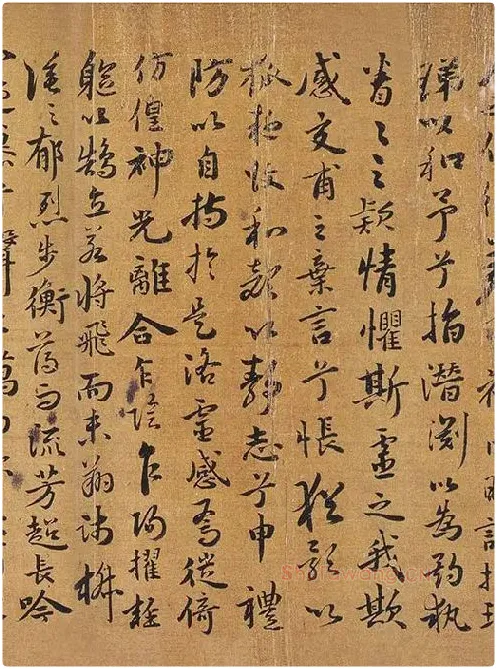 珶以和予兮指潛淵以為期執
眷〻之款情懼斯靈之我欺
感交甫之棄言兮悵猶豫以
狐疑收和顏以靜志兮申禮
防以自持於是洛靈感焉徙倚
仿偟神光離合乍陰乍陽擢輕
軀以鵠立若將飛而未翔踐椒
塗之郁烈步衡薄而流芳超長吟